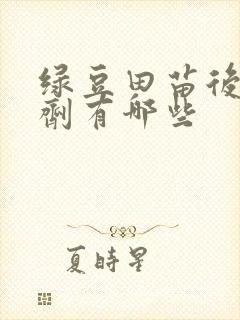 绿豆田苗後
劑有哪些
夏時星